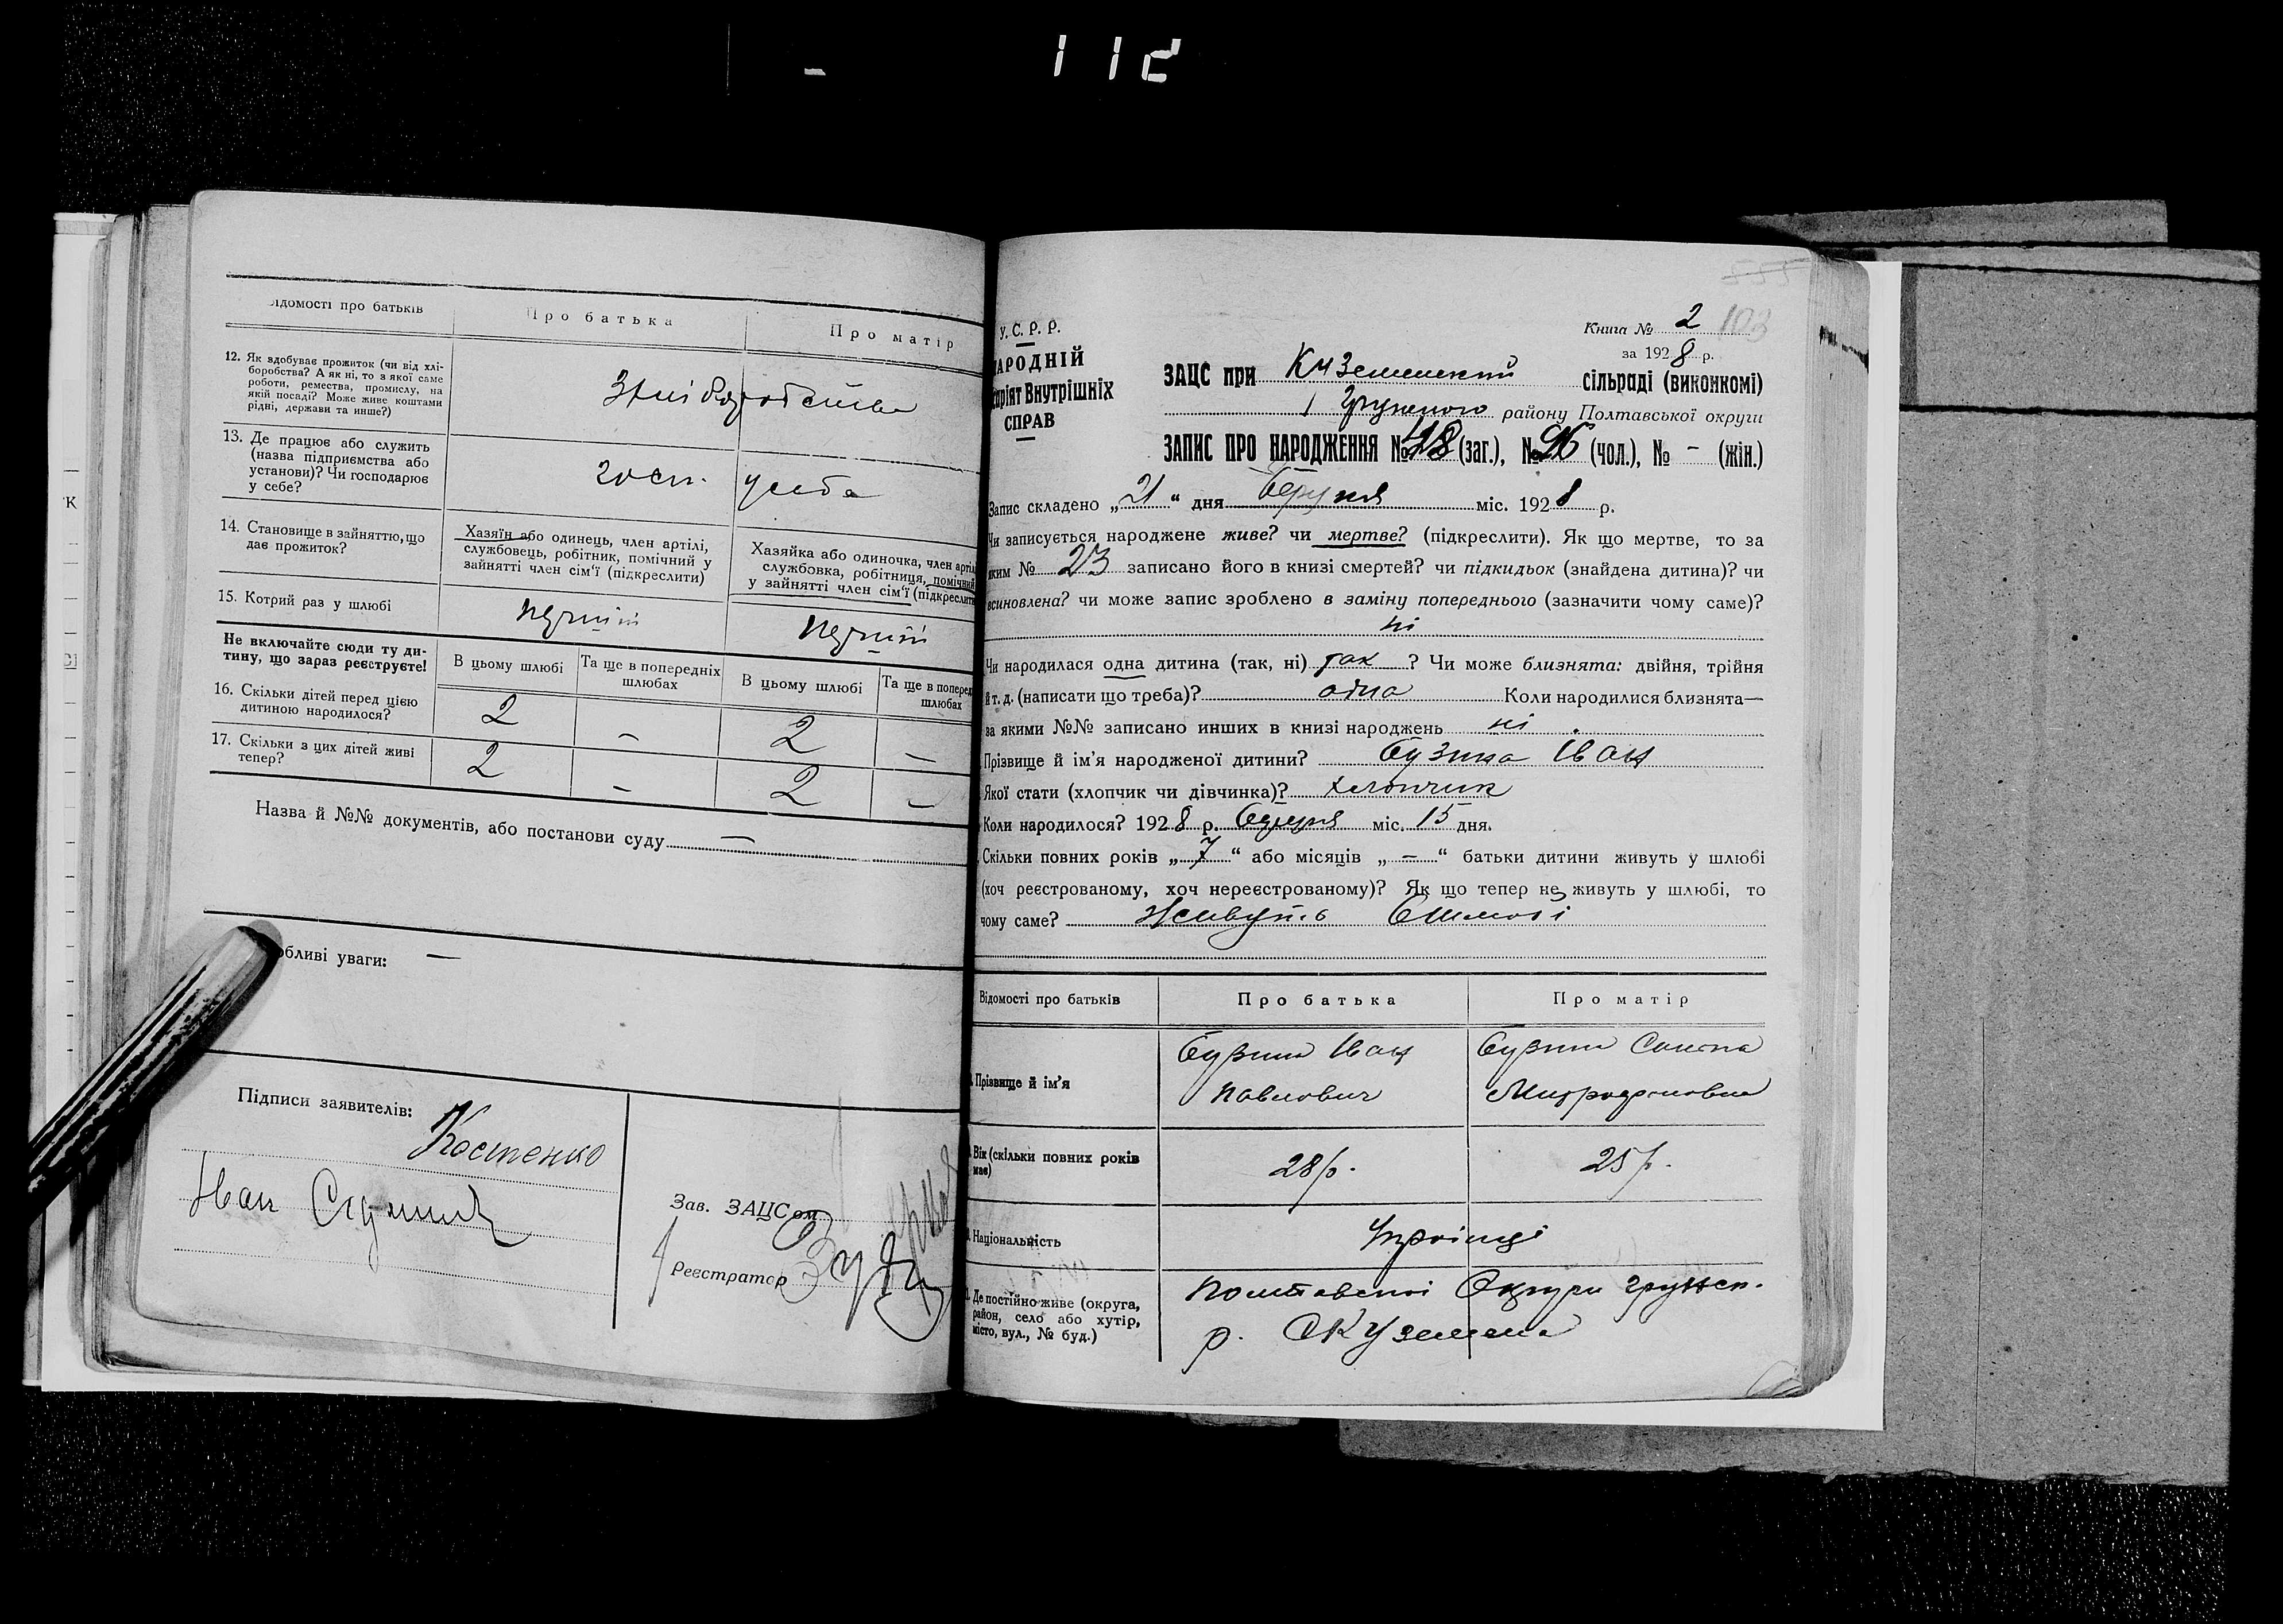 112
ідомості про батьків
Про батька
Про матір
12. Як здобуває прожиток (чи від хлі-
боробства? А як ні, то з якої саме
роботи, ремества, промислу, на
якій посаді? Може живе коштами
рідні, держави та инше?)
З хліборобства
13. Де працює або служить
(назва підприємства або
установи)? Чи господарює
у себе?
госп. у себе
14. Становище в зайняттю, що
дає прожиток?
Хазяїн або одинець, член артілі,
службовець, робітник, помічний у
зайнятті член сім'ї (підкреслити)
Хазяйка або одиночка, член артіл
службовка, робітниця, помічний
у зайнятті член сім'ї (підкреслити
15. Котрий раз у шлюбі
перший
перший
Не включайте сюди ту ди-
тину, що зараз реєструєте!
В цьому шлюбі
Та ще в попередніх
шлюбах
В цьому шлюбі
Та ще в поперед
шлюбах
16. Скільки дітей перед цією
дитиною народилося?
2 – 2 –
17. Скільки з цих дітей живі
тепер?
2 – 2 –
Назва й №№ документів, або постанови суду –
обливі уваги: –
Підписи заявителів:
Костенко
Іван
Зав. ЗАЦСом
Реєстратор
У.С.Р.Р.
АРОДНІЙ
аріят Внутрішніх
СПРАВ
Книга № 2 103
за 1928 р.
ЗАЦС при Куземенский сільраді (виконкомі)
Грунского району Полтавської округи
ЗАПИС ПРО НАРОДЖЕННЯ № 48 (заг.), № 26 (чол.), № – (жін.)
Запис складено „21" дня Серпня міс. 1928 р.
Чи записується народжене живе? чи мертве? (підкреслити). Як що мертве, то за
яким № 23 записано його в книзі смертей? чи підкидьок (знайдена дитина)? чи
всиновлена? чи може запис зроблено в заміну попереднього (зазначити чому саме)?
ні
Чи народилася одна дитина (так, ні) так ? Чи може близнята: двійня, трійня
й т. д. (написати що треба)? одна Коли народилися близнята—
за якими №№ записано инших в книзі народжень ні
Прізвище й ім'я народженої дитини? Бузина Іван
Якої стати (хлопчик чи дівчинка)? хлопчик
Коли народилося? 1928 р. Серпня міс. 15 дня.
Скільки повних років „7" або місяців „–" батьки дитини живуть у шлюбі
(хоч реєстрованому, хоч нереєстрованому)? Як що тепер не живуть у шлюбі, то
чому саме? живуть в шлюбі
Відомості про батьків
Про батька
Про матір
Прізвище й ім'я
Бузина Іван
Павлович
Бузина
Митрофановна
Вік (скільки повних років
має)
28 р.
25 р.
Національність
Українці
Де постійно живе (округа,
район, село або хутір,
місто, вул., № буд.)
Полтавскої Округи Грунск.
р. С Куземена